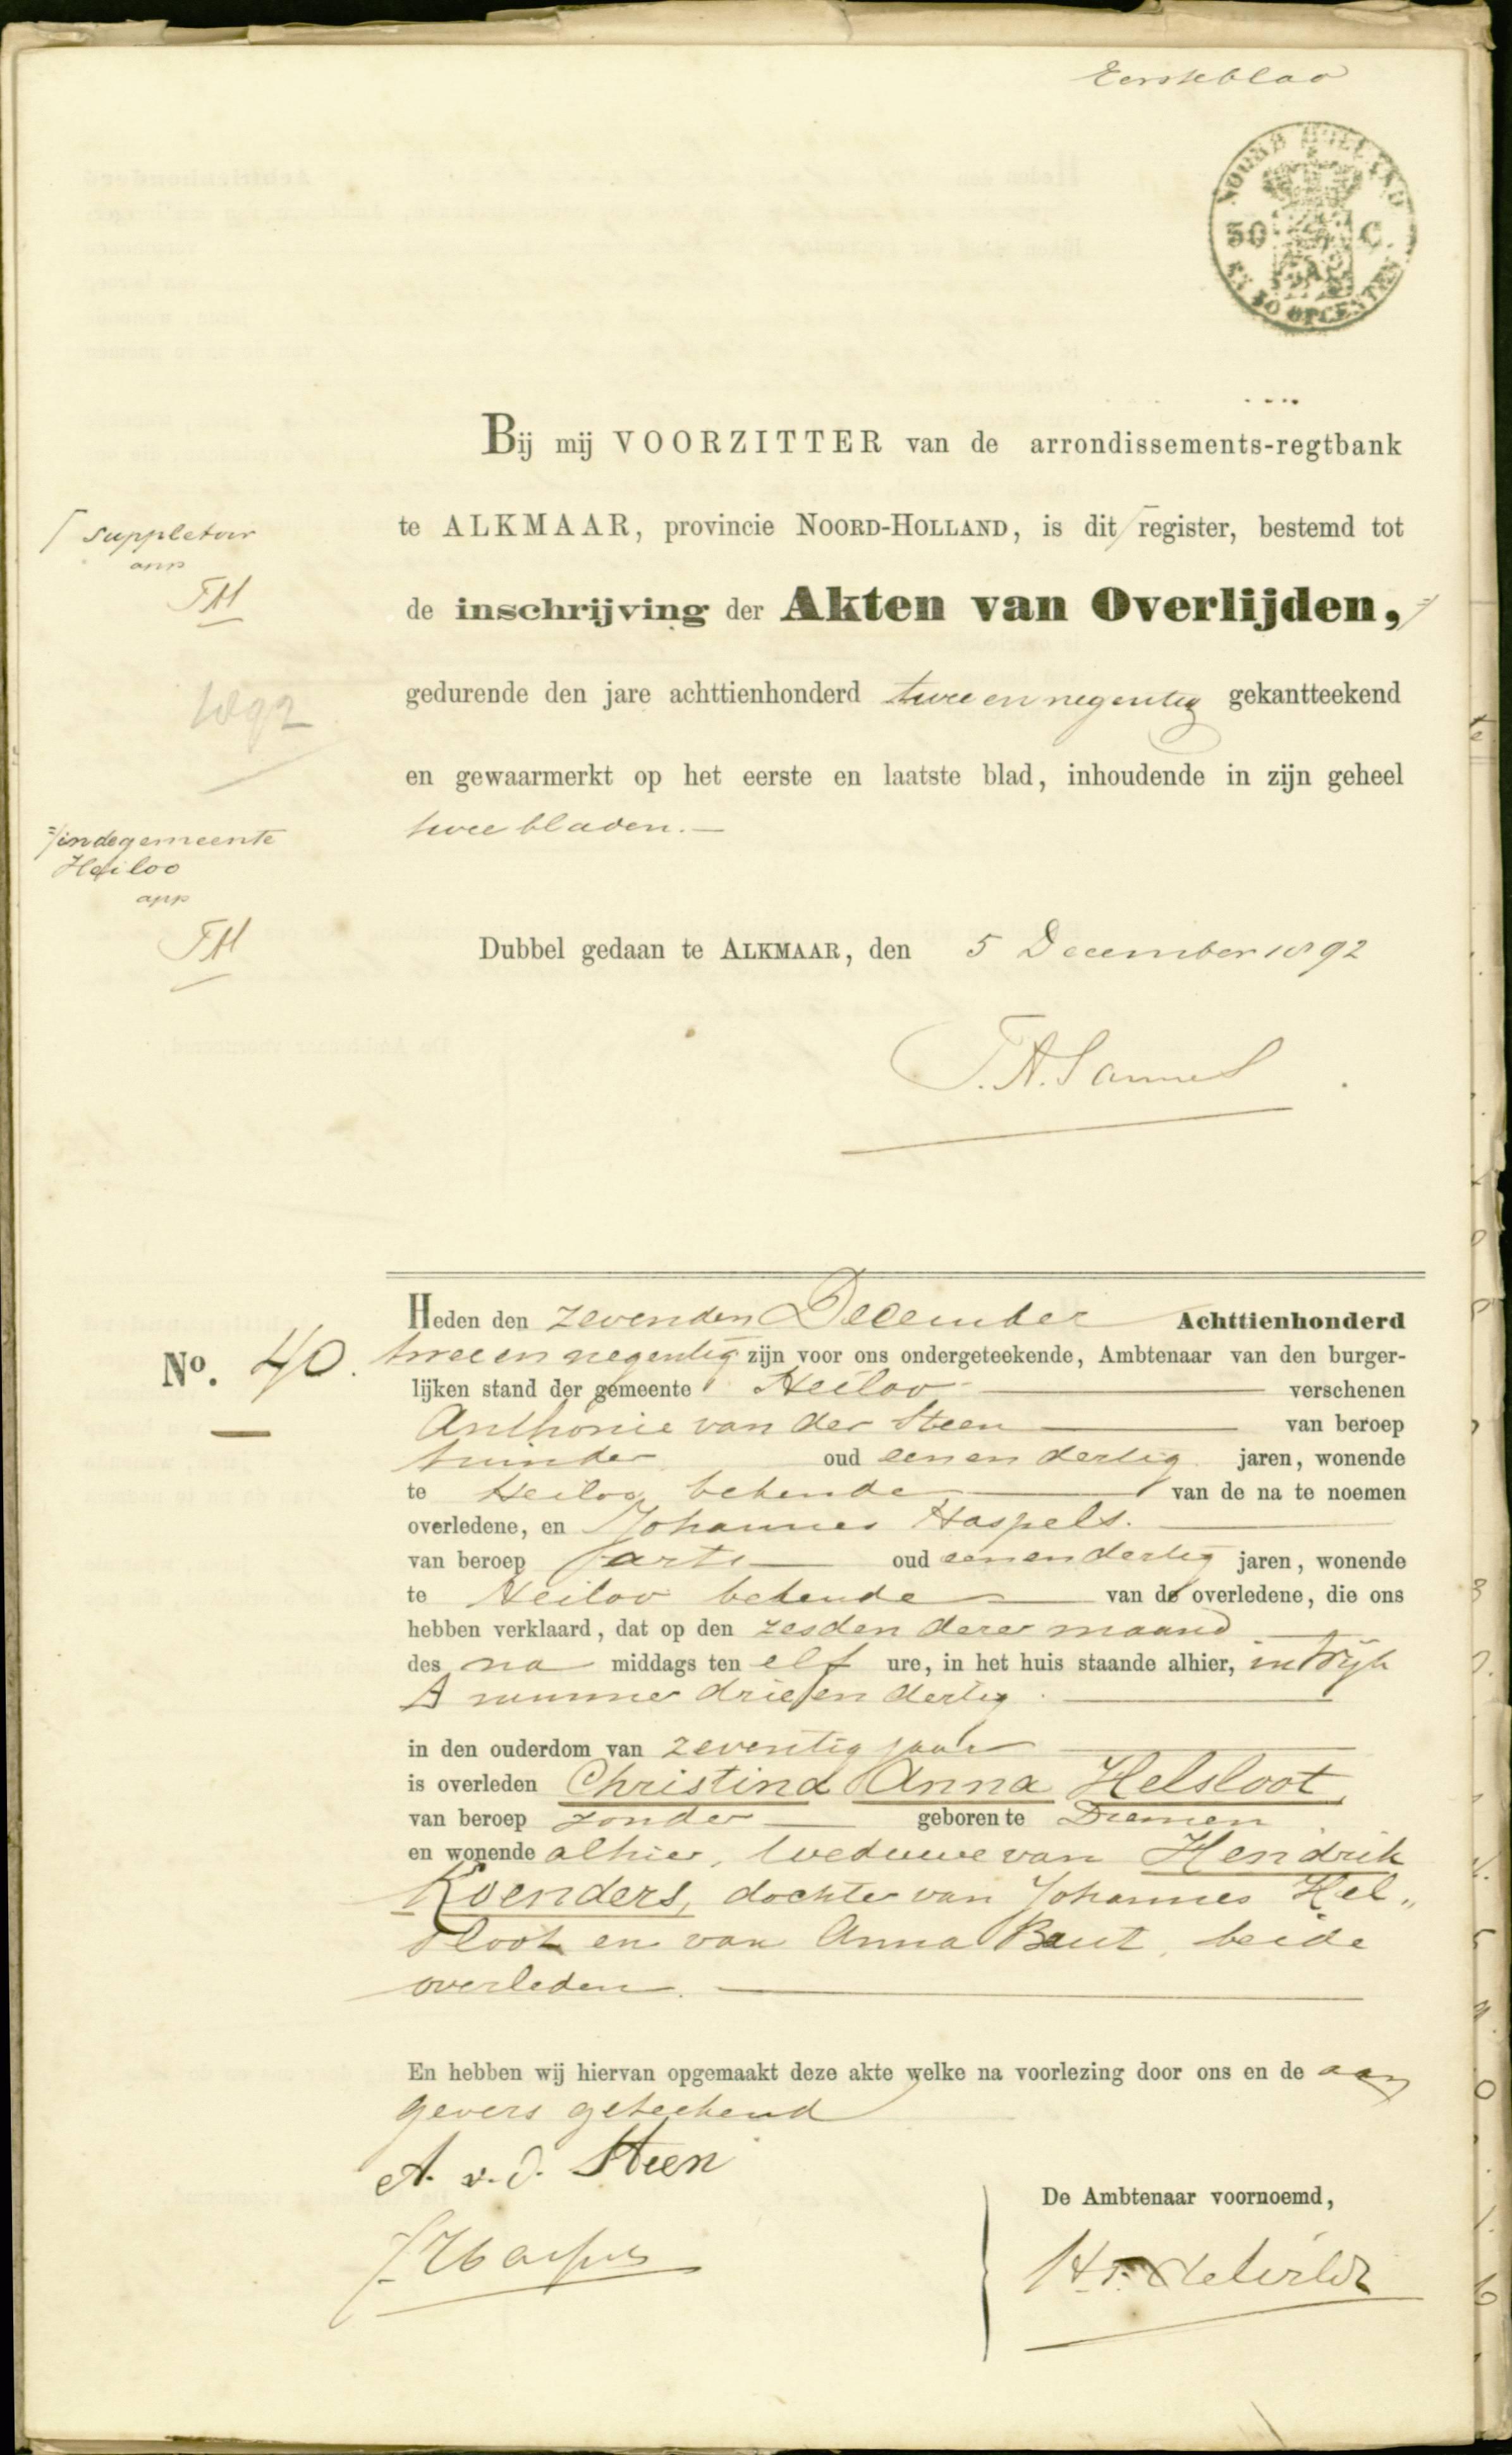 Eersteblad
NOORD HOLLAND
50 C.
EN 50 OPCENTEN
Bij mij VOORZITTER van de arrondissements-regtbank
⌈ suppletoir
app
te ALKMAAR, provincie NOORD-HOLLAND, is dit ⌈ register, bestemd tot
de inschrijving der Akten van Overlijden,
1892
gedurende den jare achttienhonderd twee en negentig gekantteekend
en gewaarmerkt op het eerste en laatste blad, inhoudende in zijn geheel
twee bladen.—
in de gemeente
Heiloo
app
Dubbel gedaan te ALKMAAR, den 5 December 1892
No. 40.
Heden den zevenden December Achttienhonderd
twee en negentig zijn voor ons ondergeteekende, Ambtenaar van den burger-
lijken stand der gemeente Heiloo verschenen
Anthonie van der Steen van beroep
tuinder oud een en dertig jaren, wonende
te Heiloo, bekende van de na te noemen
overledene, en Johannes Haspels.
van beroep arts oud een en dertig jaren, wonende
te Heiloo bekende van de overledene, die ons
hebben verklaard, dat op den zesden dezer maand
des na middags ten elf ure, in het huis staande alhier, in wijk
A nummer drie en dertig.
in den ouderdom van zeventig jaar
is overleden Christina Anna Helsloot,
van beroep zonder geboren te Diemen
en wonende alhier, weduwe van Hendrik
Koenders, dochter van Johannes Hel„
sloot en van Anna Baut, beide
overleden.
En hebben wij hiervan opgemaakt deze akte welke na voorlezing door ons en de aan
gevers geteekend
A. v. d. Steen
De Ambtenaar voornoemd,